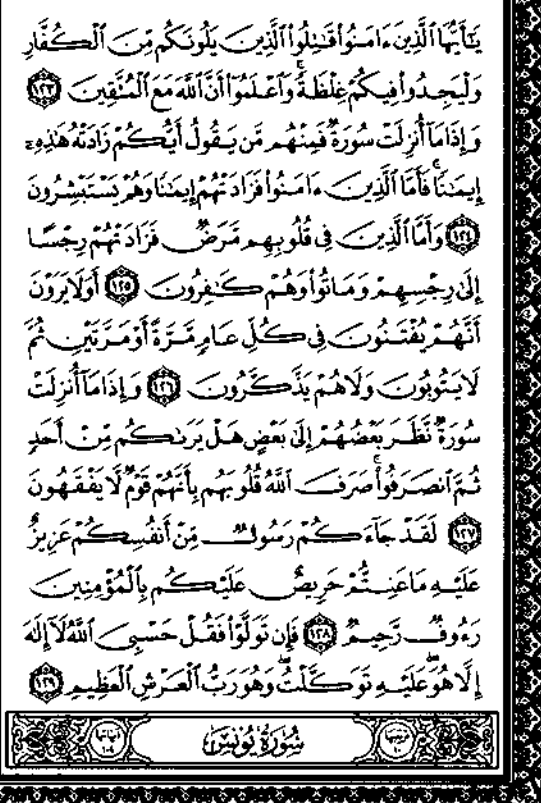 يَـٰٓأَيُّهَا ٱلَّذِينَ ءَامَنُوا۟ قَـٰتِلُوا۟ ٱلَّذِينَ يَلُونَكُم مِّنَ ٱلْكُفَّارِ
وَلْيَجِدُوا۟ فِيكُمْ غِلْظَةً ۚ وَٱعْلَمُوٓا۟ أَنَّ ٱللَّهَ مَعَ ٱلْمُتَّقِينَ ١٢٣
وَإِذَا مَآ أُنزِلَتْ سُورَةٌ فَمِنْهُم مَّن يَقُولُ أَيُّكُمْ زَادَتْهُ هَـٰذِهِۦٓ
إِيمَـٰنًا ۚ فَأَمَّا ٱلَّذِينَ ءَامَنُوا۟ فَزَادَتْهُمْ إِيمَـٰنًا وَهُمْ يَسْتَبْشِرُونَ
١٢٤ وَأَمَّا ٱلَّذِينَ فِى قُلُوبِهِم مَّرَضٌ فَزَادَتْهُمْ رِجْسًا
إِلَىٰ رِجْسِهِمْ وَمَاتُوا۟ وَهُمْ كَـٰفِرُونَ ١٢٥ أَوَلَا يَرَوْنَ
أَنَّهُمْ يُفْتَنُونَ فِى كُلِّ عَامٍ مَّرَّةً أَوْ مَرَّتَيْنِ ثُمَّ
لَا يَتُوبُونَ وَلَا هُمْ يَذَّكَّرُونَ ١٢٦ وَإِذَا مَآ أُنزِلَتْ
سُورَةٌ نَّظَرَ بَعْضُهُمْ إِلَىٰ بَعْضٍ هَلْ يَرَىٰكُم مِّنْ أَحَدٍ
ثُمَّ ٱنصَرَفُوا۟ ۚ صَرَفَ ٱللَّهُ قُلُوبَهُم بِأَنَّهُمْ قَوْمٌ لَّا يَفْقَهُونَ
١٢٧ لَقَدْ جَآءَكُمْ رَسُولٌ مِّنْ أَنفُسِكُمْ عَزِيزٌ
عَلَيْهِ مَا عَنِتُّمْ حَرِيصٌ عَلَيْكُم بِٱلْمُؤْمِنِينَ
رَءُوفٌ رَّحِيمٌ ١٢٨ فَإِن تَوَلَّوْا۟ فَقُلْ حَسْبِىَ ٱللَّهُ لَآ إِلَـٰهَ
إِلَّا هُوَ ۖ عَلَيْهِ تَوَكَّلْتُ ۖ وَهُوَ رَبُّ ٱلْعَرْشِ ٱلْعَظِيمِ ١٢٩
ترتيبها ١٠ سُورَةُ يُونُسَ آياتها ١٠٩